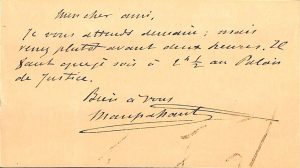 Mon cher ami,
Je vous attends demain; mais
venez plutôt avant deux heures. Il
faut que je sois à 2h ½ au Palais
de Justice.
Bien à vous
Maupassant